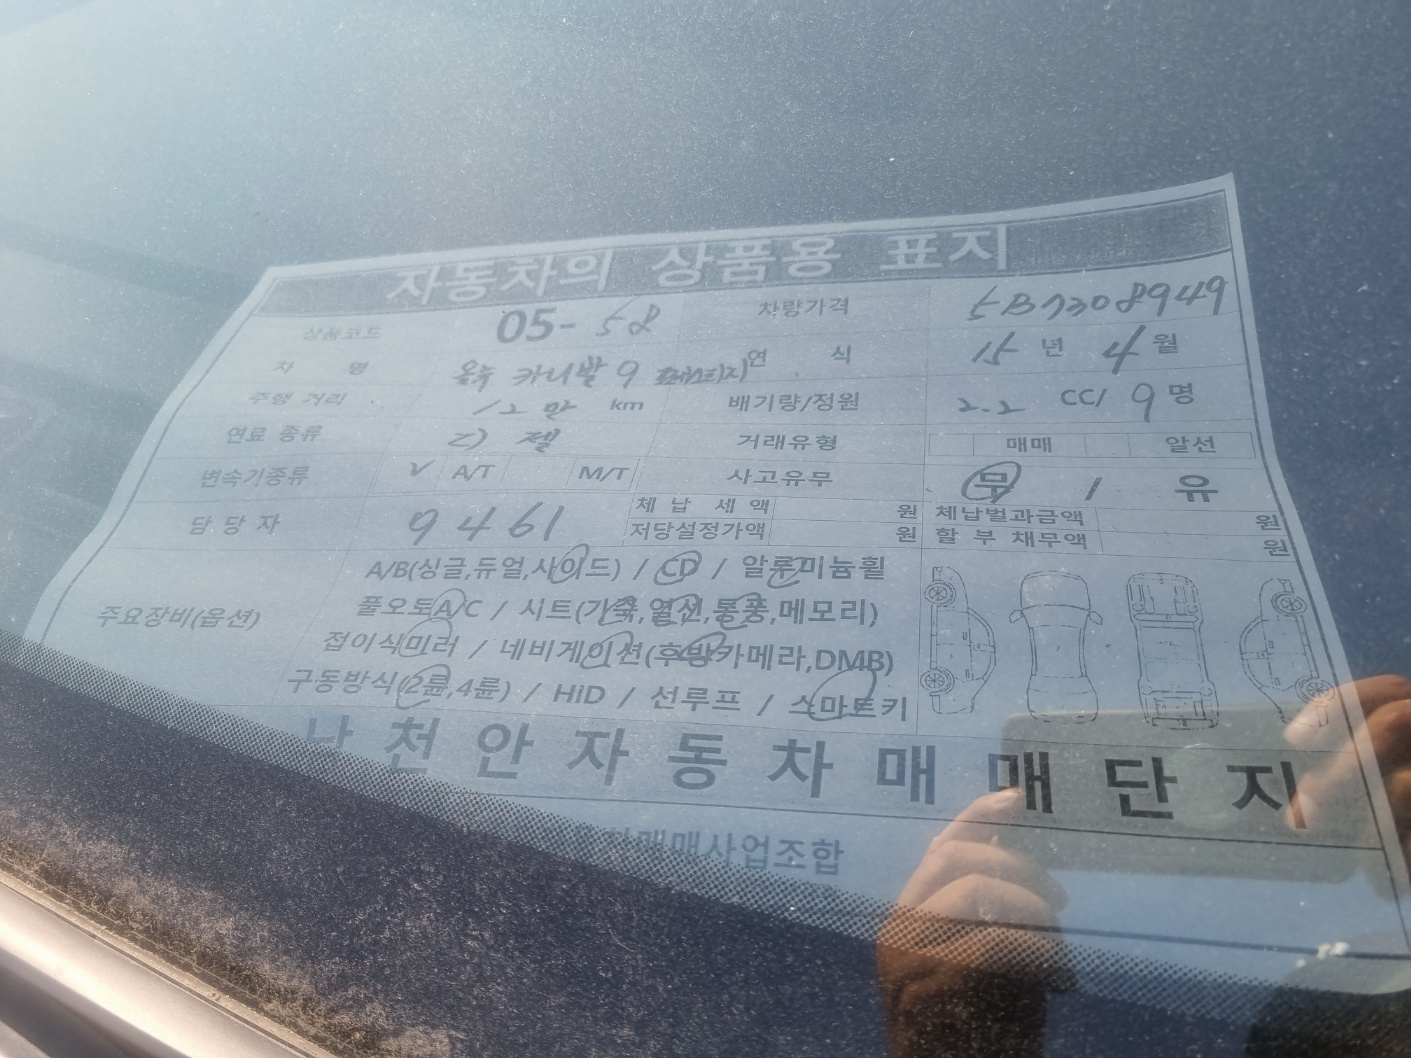 자동차의 상품용 표지
상품코드 05- 58 차량가격 5B7308949
차 명 올뉴 카니발 9 프레스티지 연 식 15년 4월
주행 거리 12만 km 배기량/정원 2.2 CC/ 9명
연료 종류 디젤 거래유형 매매 알선
변속기종류 V A/T M/T 사고유무 무 / 유
담 당 자 9461 체 납 세 액 원 체납벌과금액 원
저당설정가액 원 할 부 채무액 원
주요장비(옵션) A/B(싱글,듀얼,사이드) / CD / 알루미늄휠
풀오토A/C / 시트(가죽,열선,통풍,메모리)
접이식미러 / 네비게이션(후방카메라,DMB)
구동방식(2륜,4륜) / HiD / 선루프 / 스마트키
남천안자동차매매단지
동차매매사업조합